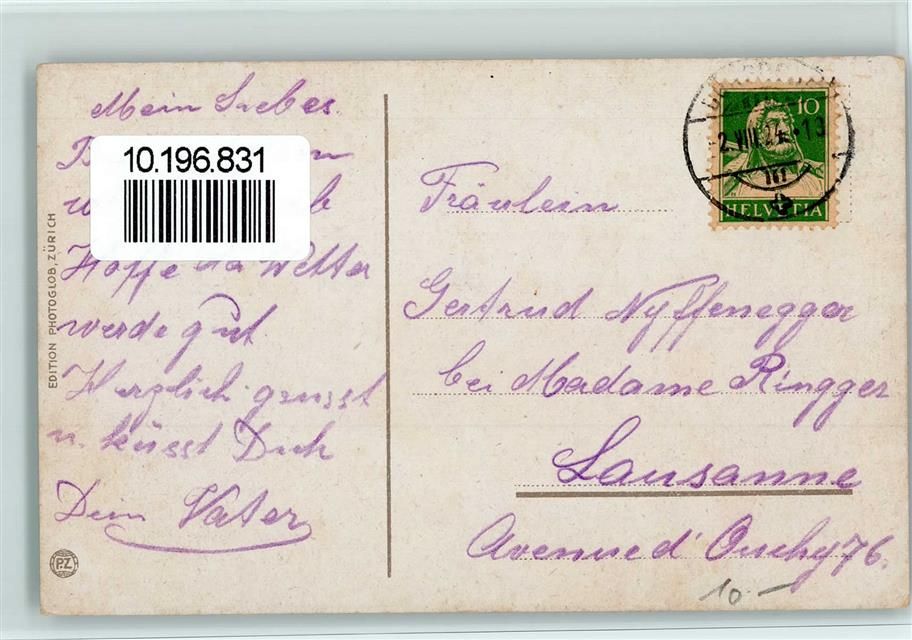 Mein Liebes
10.196.831
Hoffe das Wetter
werde gut
Herzlich grüsst
u. küsst Dich
Dein Vater
EDITION PHOTOGLOB, ZÜRICH
PZ
10
HELVETIA
2.VIII.
Fräulein
Gertrud Nyffenegger
bei Madame Ringger
Lausanne
Avenue d'Ouchy 76.
10 —